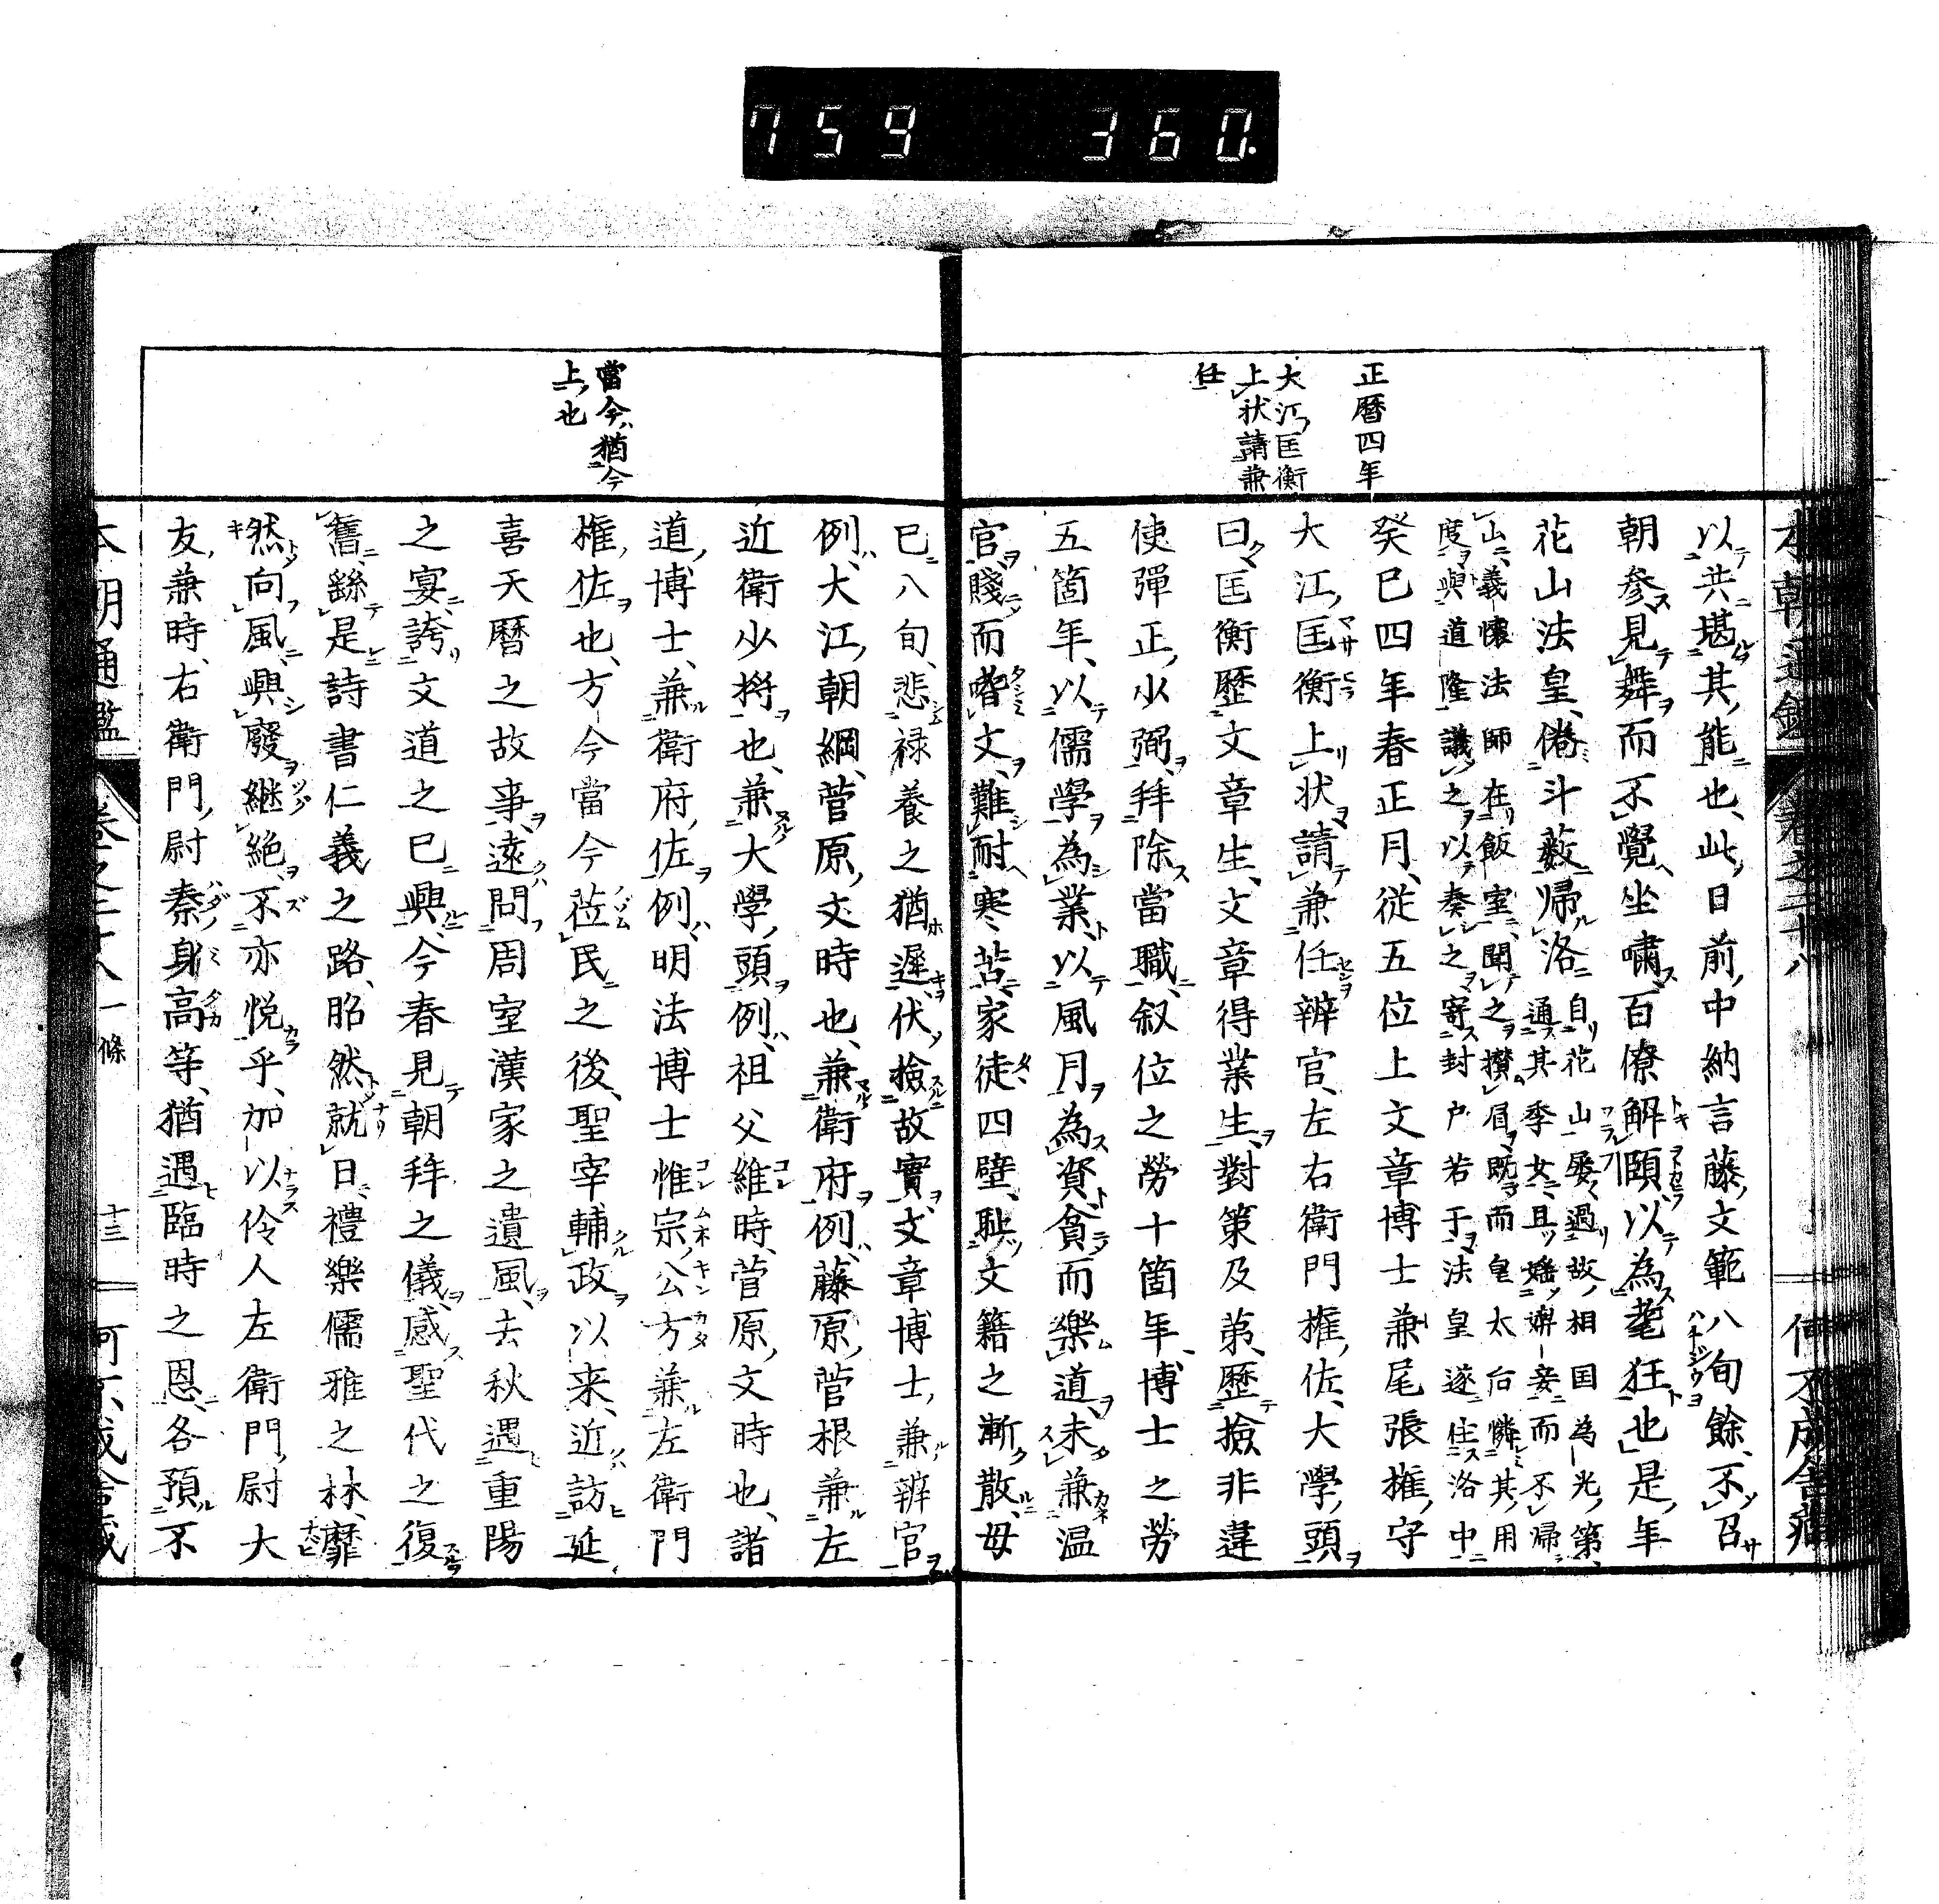 759 360.
正曆四年
大江匡衡
上狀請兼
任
以共堪其能也、此日前中納言藤文範八旬餘、不召
朝參見舞而不覺坐嘯百僚解頤、以為耄狂也、是年
花山法皇、倦斗藪歸洛
自花山屡過故相国為光第、
通其季女、且婬嬶妾而不歸
山、義懷法師在飯室、聞之攢眉、既而皇太后憐其用
度與道隆議之、以奏之寄封戸若于法皇遂住洛中
癸巳四年春正月、從五位上文章博士兼尾張権守
大江匡衡上狀請兼任辨官、左右衛門権佐、大學頭
曰匡衡歷文章生、文章得業生、對策及第、歷撿非違
使彈正少弼、拜除當職、叙位之勞十箇年、博士之勞
五箇年、以儒學為業、以風月為資、貧而樂道、未兼温
官、賤而嗜文、難耐寒苦、家徒四壁、恥文籍之漸散、母
當今猶今
上也
已八旬、悲禄養之猶遲、伏撿故實、文章博士兼辨官
例、大江朝綱、菅原文時也、兼衛府例、藤原菅根兼左
近衛少將也、兼大學頭例、祖父維時、菅原文時也、諸
道博士、兼衛府佐例、明法博士惟宗公方兼左衛門
権佐也、方今當今莅民之後、聖宰輔政以来、近訪延
喜天曆之故事、遠問周室漢家之遺風、去秋遇重陽
之宴、誇文道之已興、今春見朝拜之儀、感聖代之復
舊、繇是詩書仁義之路、昭然就日、禮樂儒雅之林、靡
然向風、興廢継絶、不亦悦乎、加以伶人左衛門尉大
友兼時、右衛門尉秦身高等、猶遇臨時之恩、各預不
本朝通鑑 卷之二十八 一條 十三